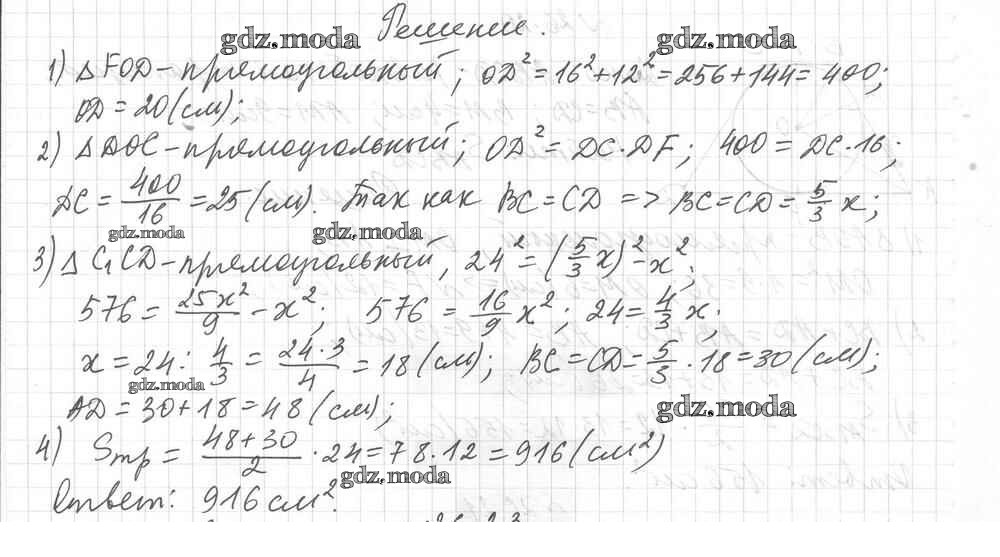 Решение.
gdz.moda gdz.moda
1) △FOD - прямоугольный; OD² = 16² + 12² = 256 + 144 = 400;
OD = 20 (см);
2) △DOC - прямоугольный; OD² = DC·DF; 400 = DC·16;
DC = 400/16 = 25 (см). Так как BC = CD => BC = CD = 5/3 x;
gdz.moda gdz.moda
3) △C₁CD - прямоугольный, 24² = (5/3 x)² - x²;
576 = 25x²/9 - x²; 576 = 16/9 x²; 24 = 4/3 x;
x = 24 : 4/3 = 24·3/4 = 18 (см); BC = CD = 5/3 · 18 = 30 (см);
gdz.moda
AD = 30 + 18 = 48 (см);
gdz.moda
4) Sтр = 48+30/2 · 24 = 78·12 = 916 (см²)
gdz.moda
Ответ: 916 см².